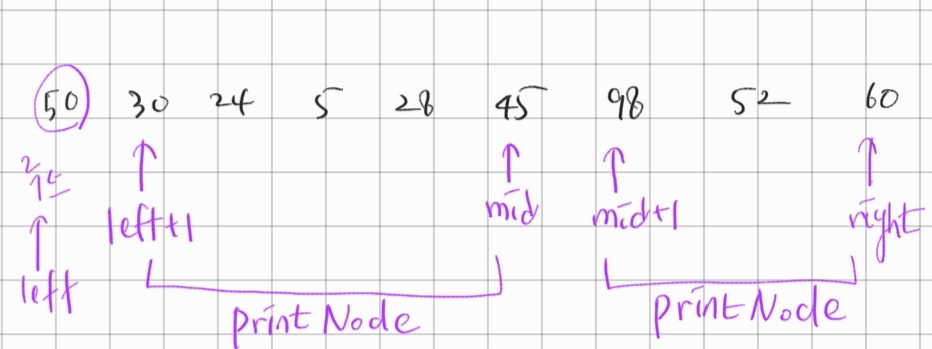 50 30 24 5 28 45 98 52 60
루트
left left+1 mid mid+1 right
print Node print Node